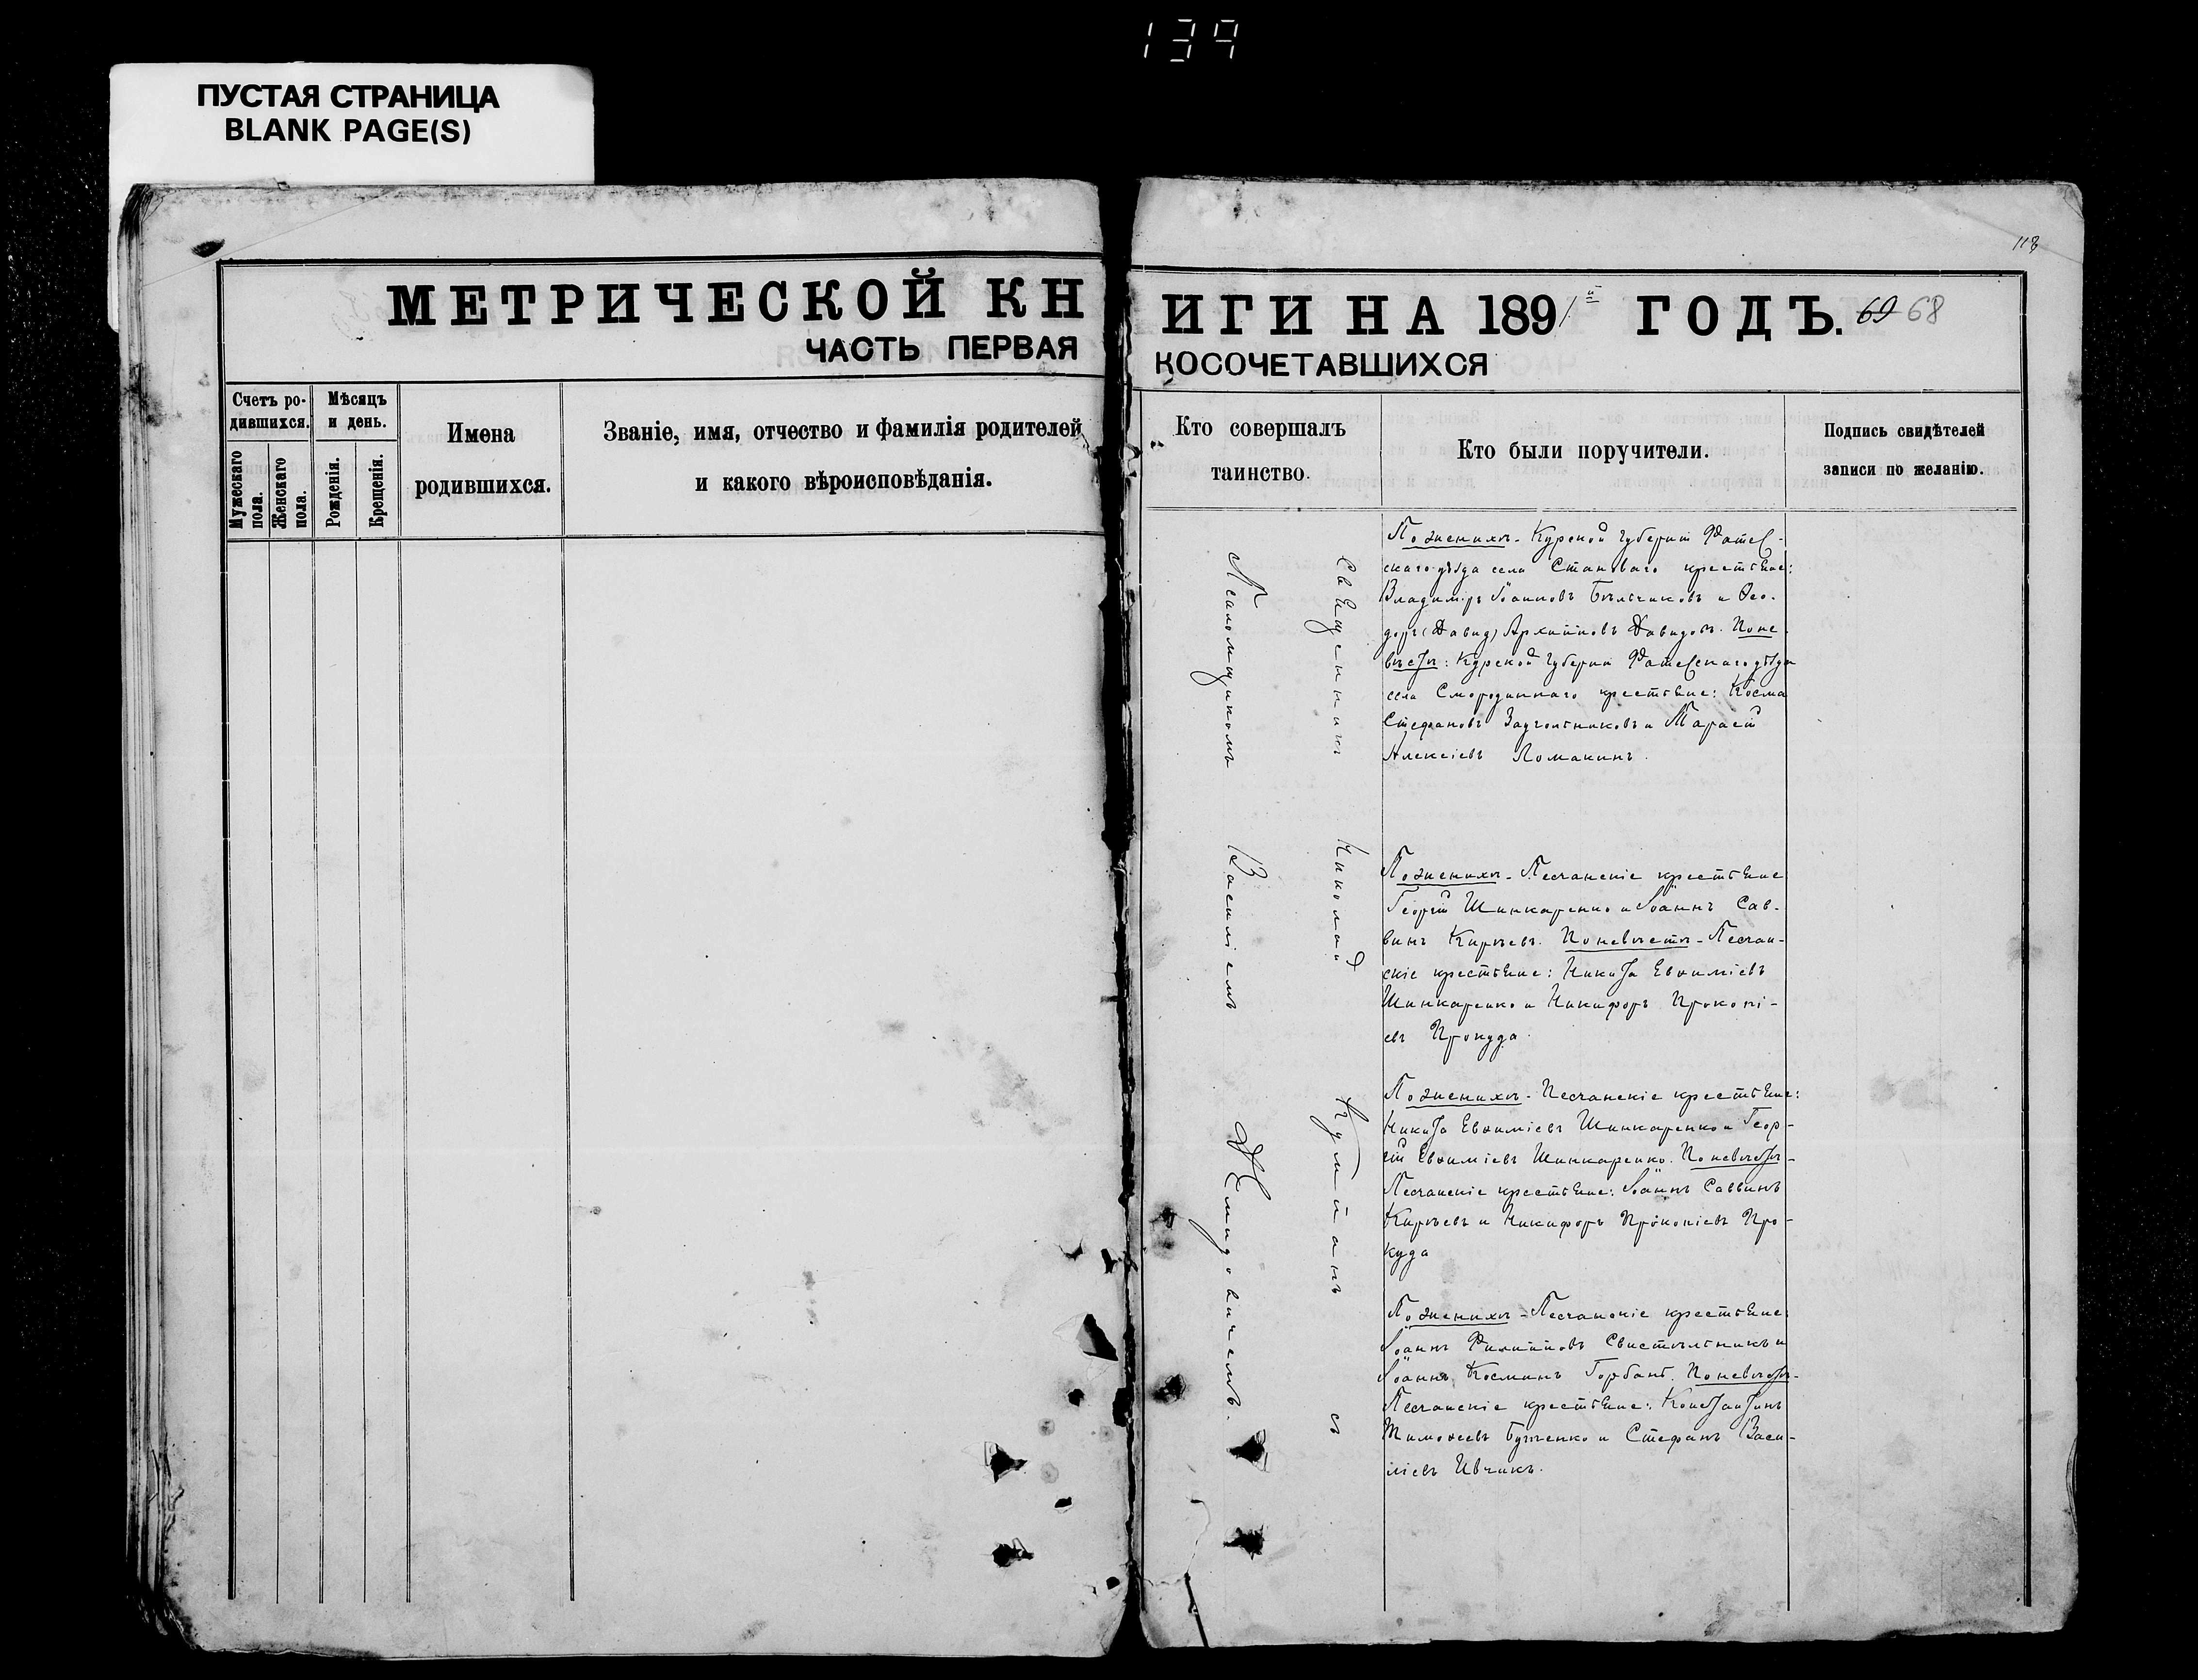 139
ПУСТАЯ СТРАНИЦА
BLANK PAGE(S)
118
МЕТРИЧЕСКОЙ КН
ЧАСТЬ ПЕРВАЯ
Счетъ ро-
дившихся.
Мужескаго
пола.
Женскаго
пола.
Мѣсяцъ
и день.
Рожденія.
Крещенія.
Имена
родившихся.
Званіе, имя, отчество и фамилія родителей
и какого вѣроисповѣданія.
ИГИ НА 1891 й ГОДЪ. 69 68
КОСОЧЕТАВШИХСЯ
Кто совершалъ
таинство.
Кто были поручители.
Подпись свидѣтелей
записи по желанію.
Священникъ Николай Кулийанъ съ
Псаломщикомъ Василіемъ Демидовичемъ.
По женихѣ - Курской губерніи Фатеж-
скаго уѣзда села Становаго крестьяне:
Владиміръ Іоанновъ Бѣльчиковъ и Ѳео-
доръ (Давид) Архиповъ Давидовъ. По не-
вѣстѣ: Курской губерніи Фатежскаго уѣзда
села Смородиннаго крестьяне: Косма
Стефановъ Заугольниковъ и Тарасій
Алексіевъ Ломакинъ.
По женихѣ - Песчанскіе крестьяне
Георгій Шинкаренко и Іоаннъ Сав-
винъ Кирѣевъ. По невѣстѣ - Песчан-
скіе крестьяне: Никита Евѳиміевъ
Шинкаренко и Никифоръ Прокопі-
евъ Прокуда.
По женихѣ - Песчанскіе крестьяне:
Никита Евѳиміевъ Шинкаренко и Геор-
гій Евѳиміевъ Шинкаренко. По невѣстѣ -
Песчанскіе крестьяне: Іоаннъ Саввинъ
Кирѣевъ и Никифоръ Прокопіевъ Про-
куда
По женихѣ - Песчанскіе крестьяне:
Іоаннъ Филипповъ Свистѣльникъ и
Іоаннъ Косминъ Горбань. По невѣстѣ -
Песчанскіе крестьяне: Константинъ
Тимоѳеевъ и Стефанъ Васи-
ліевъ Ивчикъ.